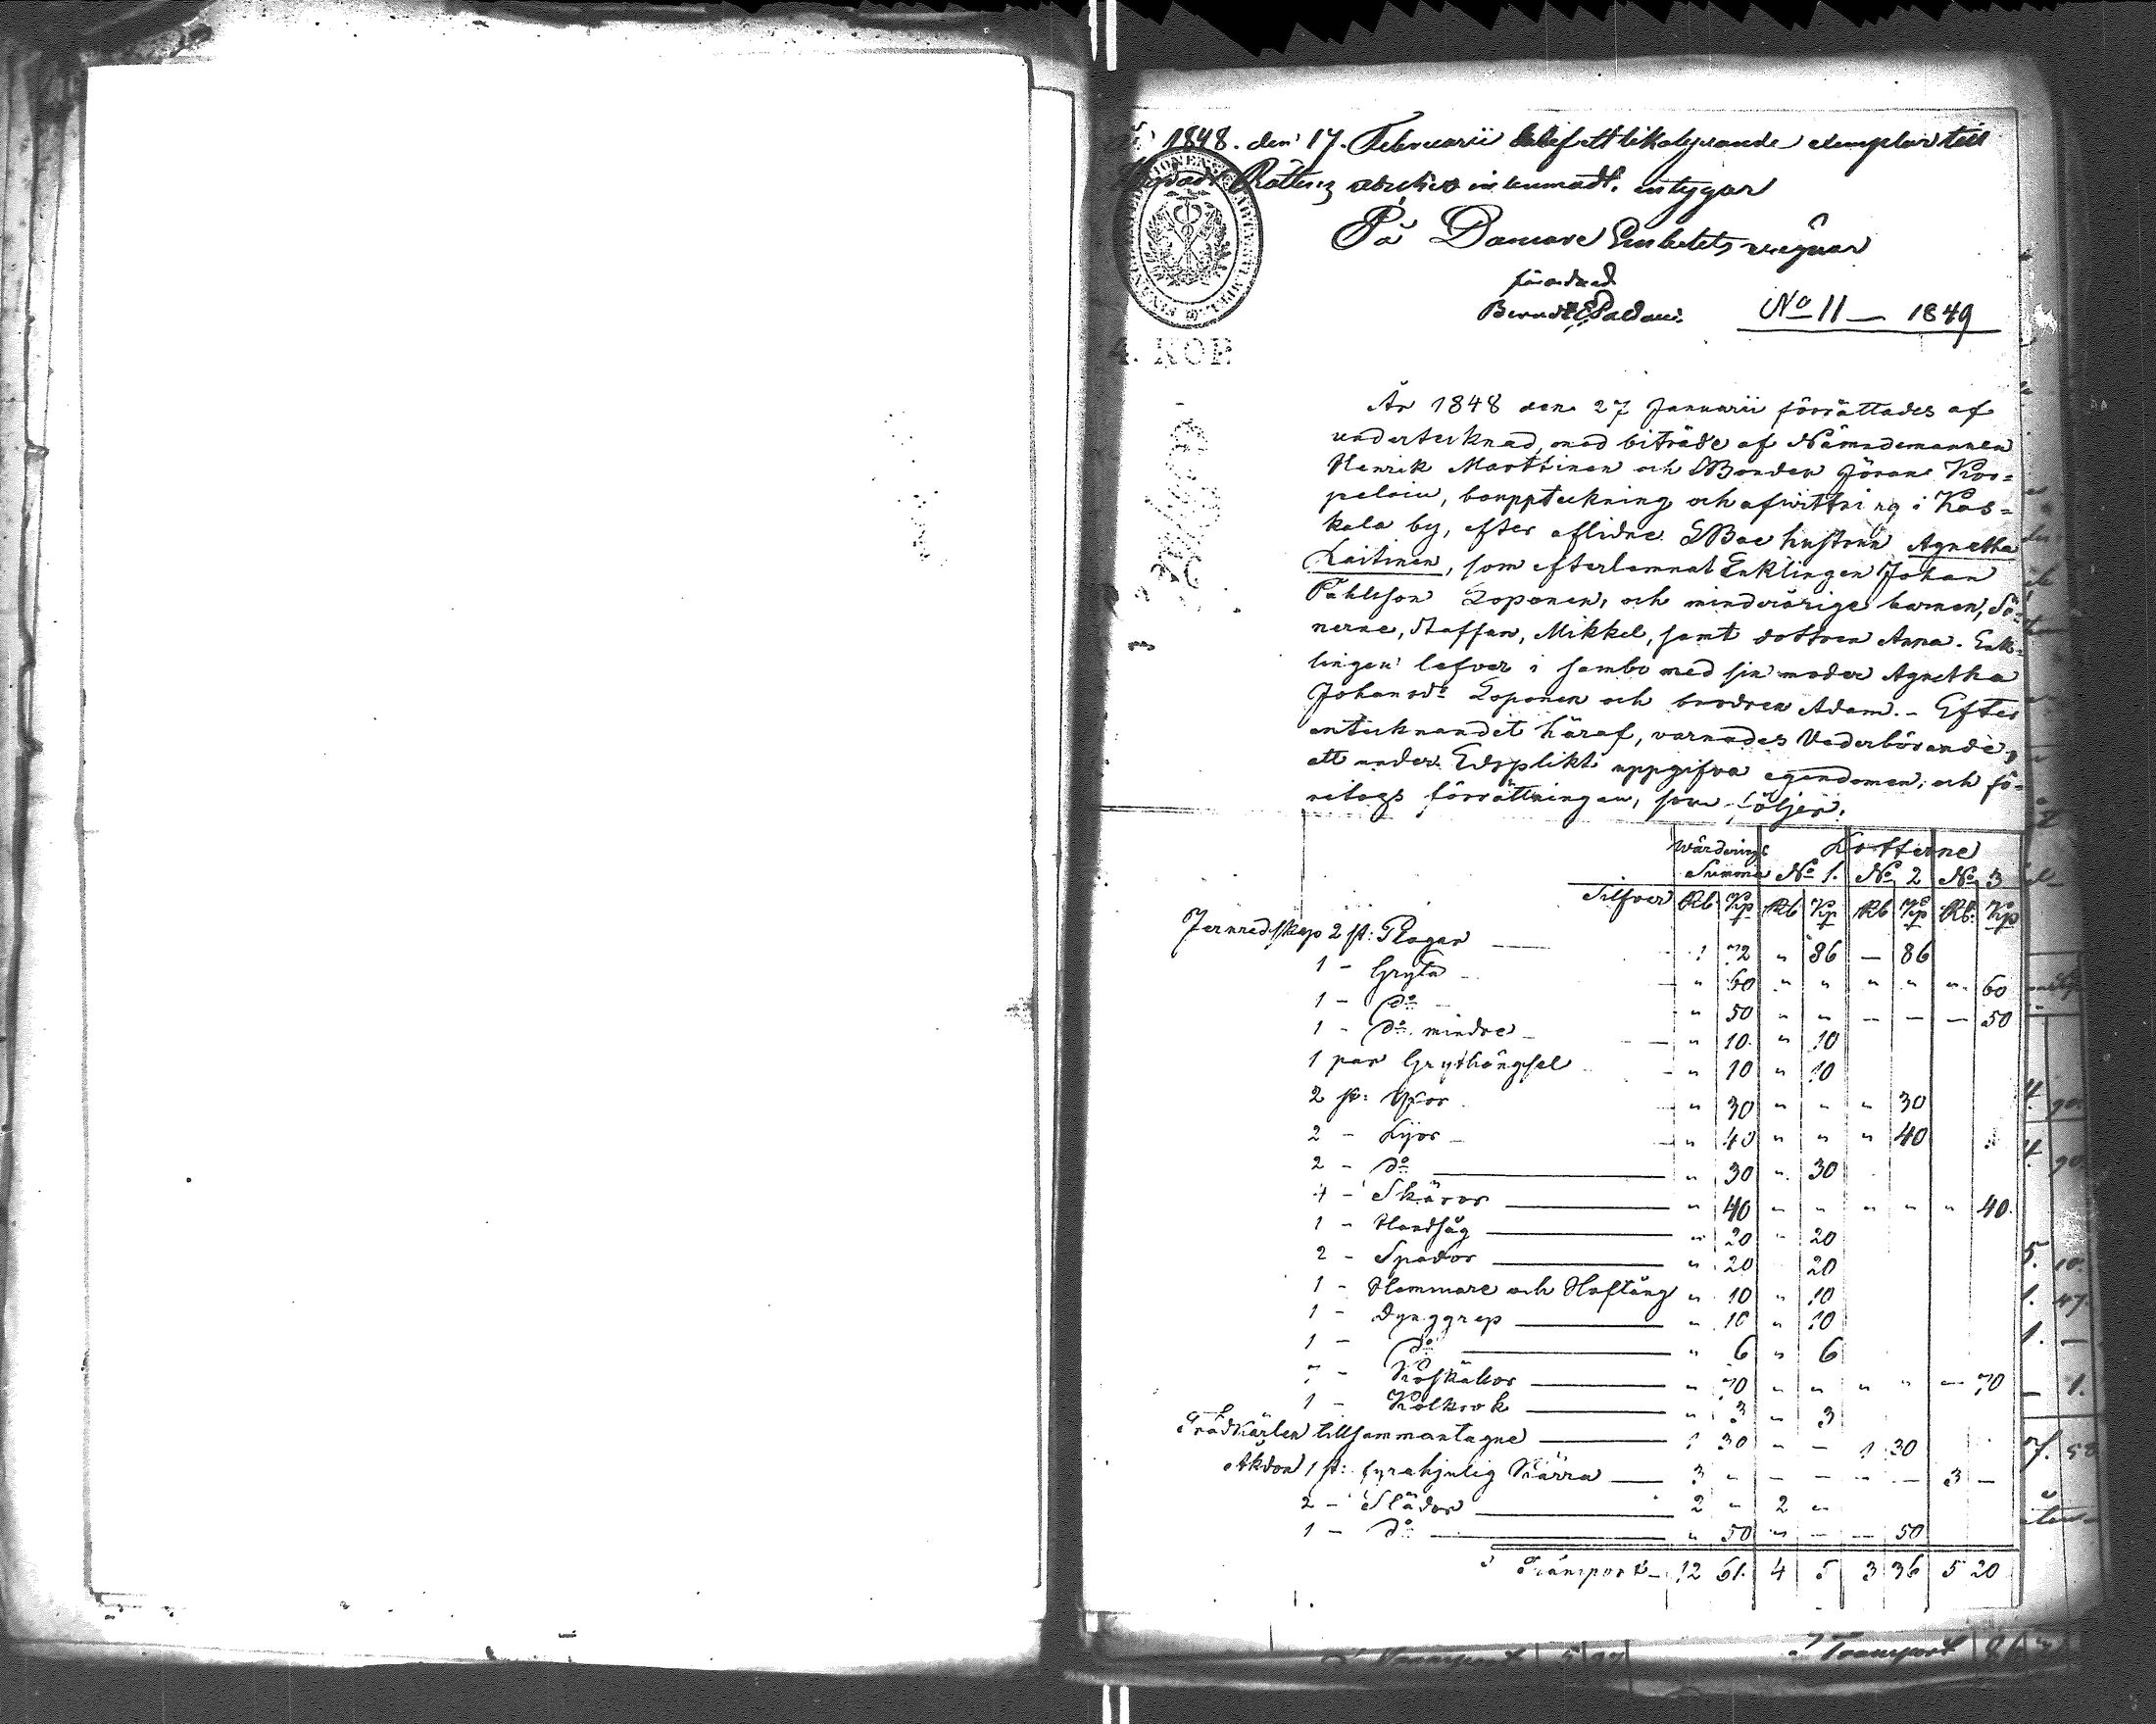 1848. den 17. Februarii blef ett likalydande exemplar till
Rättens archiv inlemnadt. intygar
På Domare Embetets vägnar
förordnad
No 11 — 1849
4. KOP.
År 1848 den 27 Januarii förrättades af
undertecknad, med biträde af Nämndemannen
Henrik Marttinen och Bonden Jöran Kor=
pelain, bouppteckning och afwittring i Kas=
kala by, efter aflidne Bde hustrun Agnetha
Laitinen, som efterlemnat Enklingen Johan
Påhlsson Loponen, och minderårige barnen, Sö=
nerne, Staffan, Mikkel, samt dottren Anna. Enk=
lingen lefver i sambo med sin moder Agnetha
Johansdr Loponen och brodren Adam. - Efter
antecknandet häraf, varnades Vederbörande,
att under Edsplikt uppgifva egendomen, och fö=
retogs förrättningen, som följer:
Wärderings Lotterne
Summa No 1. No 2 No 3
Silfver Rb Kp Rb Kp Rb Kp Rb. Kp
Jernredskap 2 st: Plogar — 1 72 " 86 — 86
1 - Gryta - " 60 " " " " " 60
1 - do - " 50 " " — — — 50
1 - do mindre - " 10. " 10
1 par Grythängsel " 10 " 10
2 st: Yxor " 30 " " " 30
2 - Lijor - " 40 " " " 40
2 - do — " 30 " 30
4 - Skäror — " 40 " " " " " 40.
1 - Handsåg — " 20 " 20
2 - Spador — " 20 20
1 - Hammare och Hoftång " 10 " 10
1 - Dynggrep — " 10 " 10
1 - do — " 6 " 6
7 - Koskällor — " 70 " " " " — 70
1 - Kolkrok — " 3 " 3
Trädkärlen tillsammantagne — 1 30 " — 1 30
Åkdon 1 st: fyrahjulig Kärra — 3 " — — — — 3 —
2 - Slädor — 2 " 2 "
1 - do — " 50 " — — 50
Transport — 12 61. 4 5 3 36 5 20
Transport